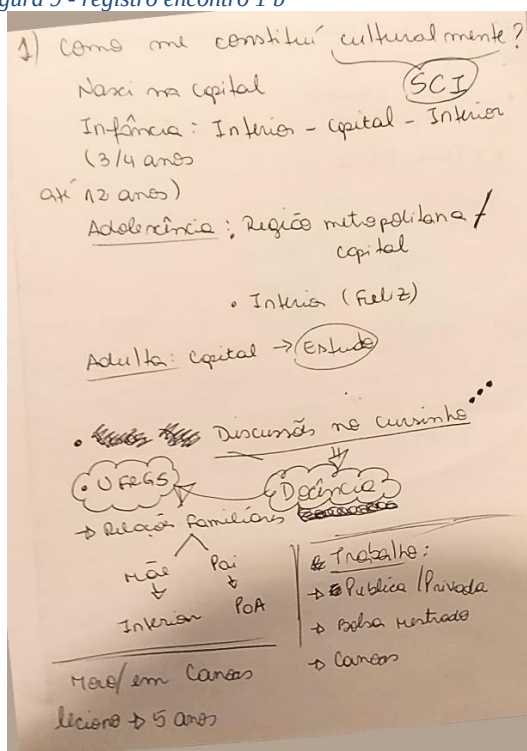 figura 9 - registro encontro 1 b
1) Como me constituí culturalmente?
SCI
Nasci na Capital
Infância: Interior - Capital - Interior
(3/4 anos
até 12 anos)
Adolescência: Região metropolitana /
capital
• Interior (Feliz)
Adulta: Capital → Estudo
• Discussões no cursinho...
• UFRGS
Docência
→ Relações Familiares
Mãe Pai
Interior PoA
Moro/em Canoas
leciono → 5 anos
Trabalho:
→ Pública / Privada
→ Bolsa Mestrado
→ Canoas